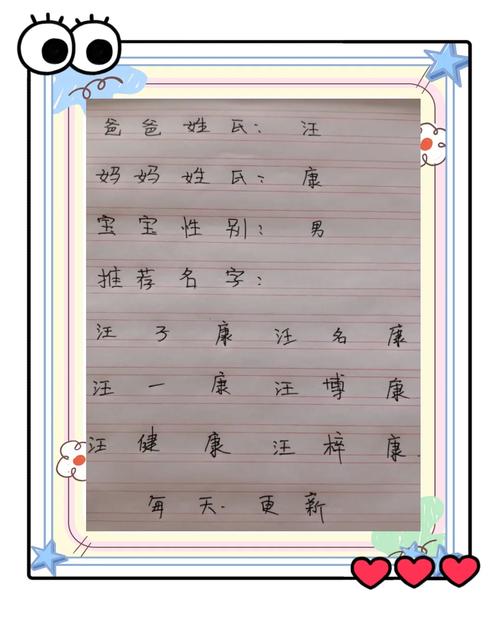 爸爸姓氏：汪
妈妈姓氏：康
宝宝性别：男
推荐名字：
汪子康 汪名康
汪一康 汪博康
汪健康 汪梓康.
每天.更新